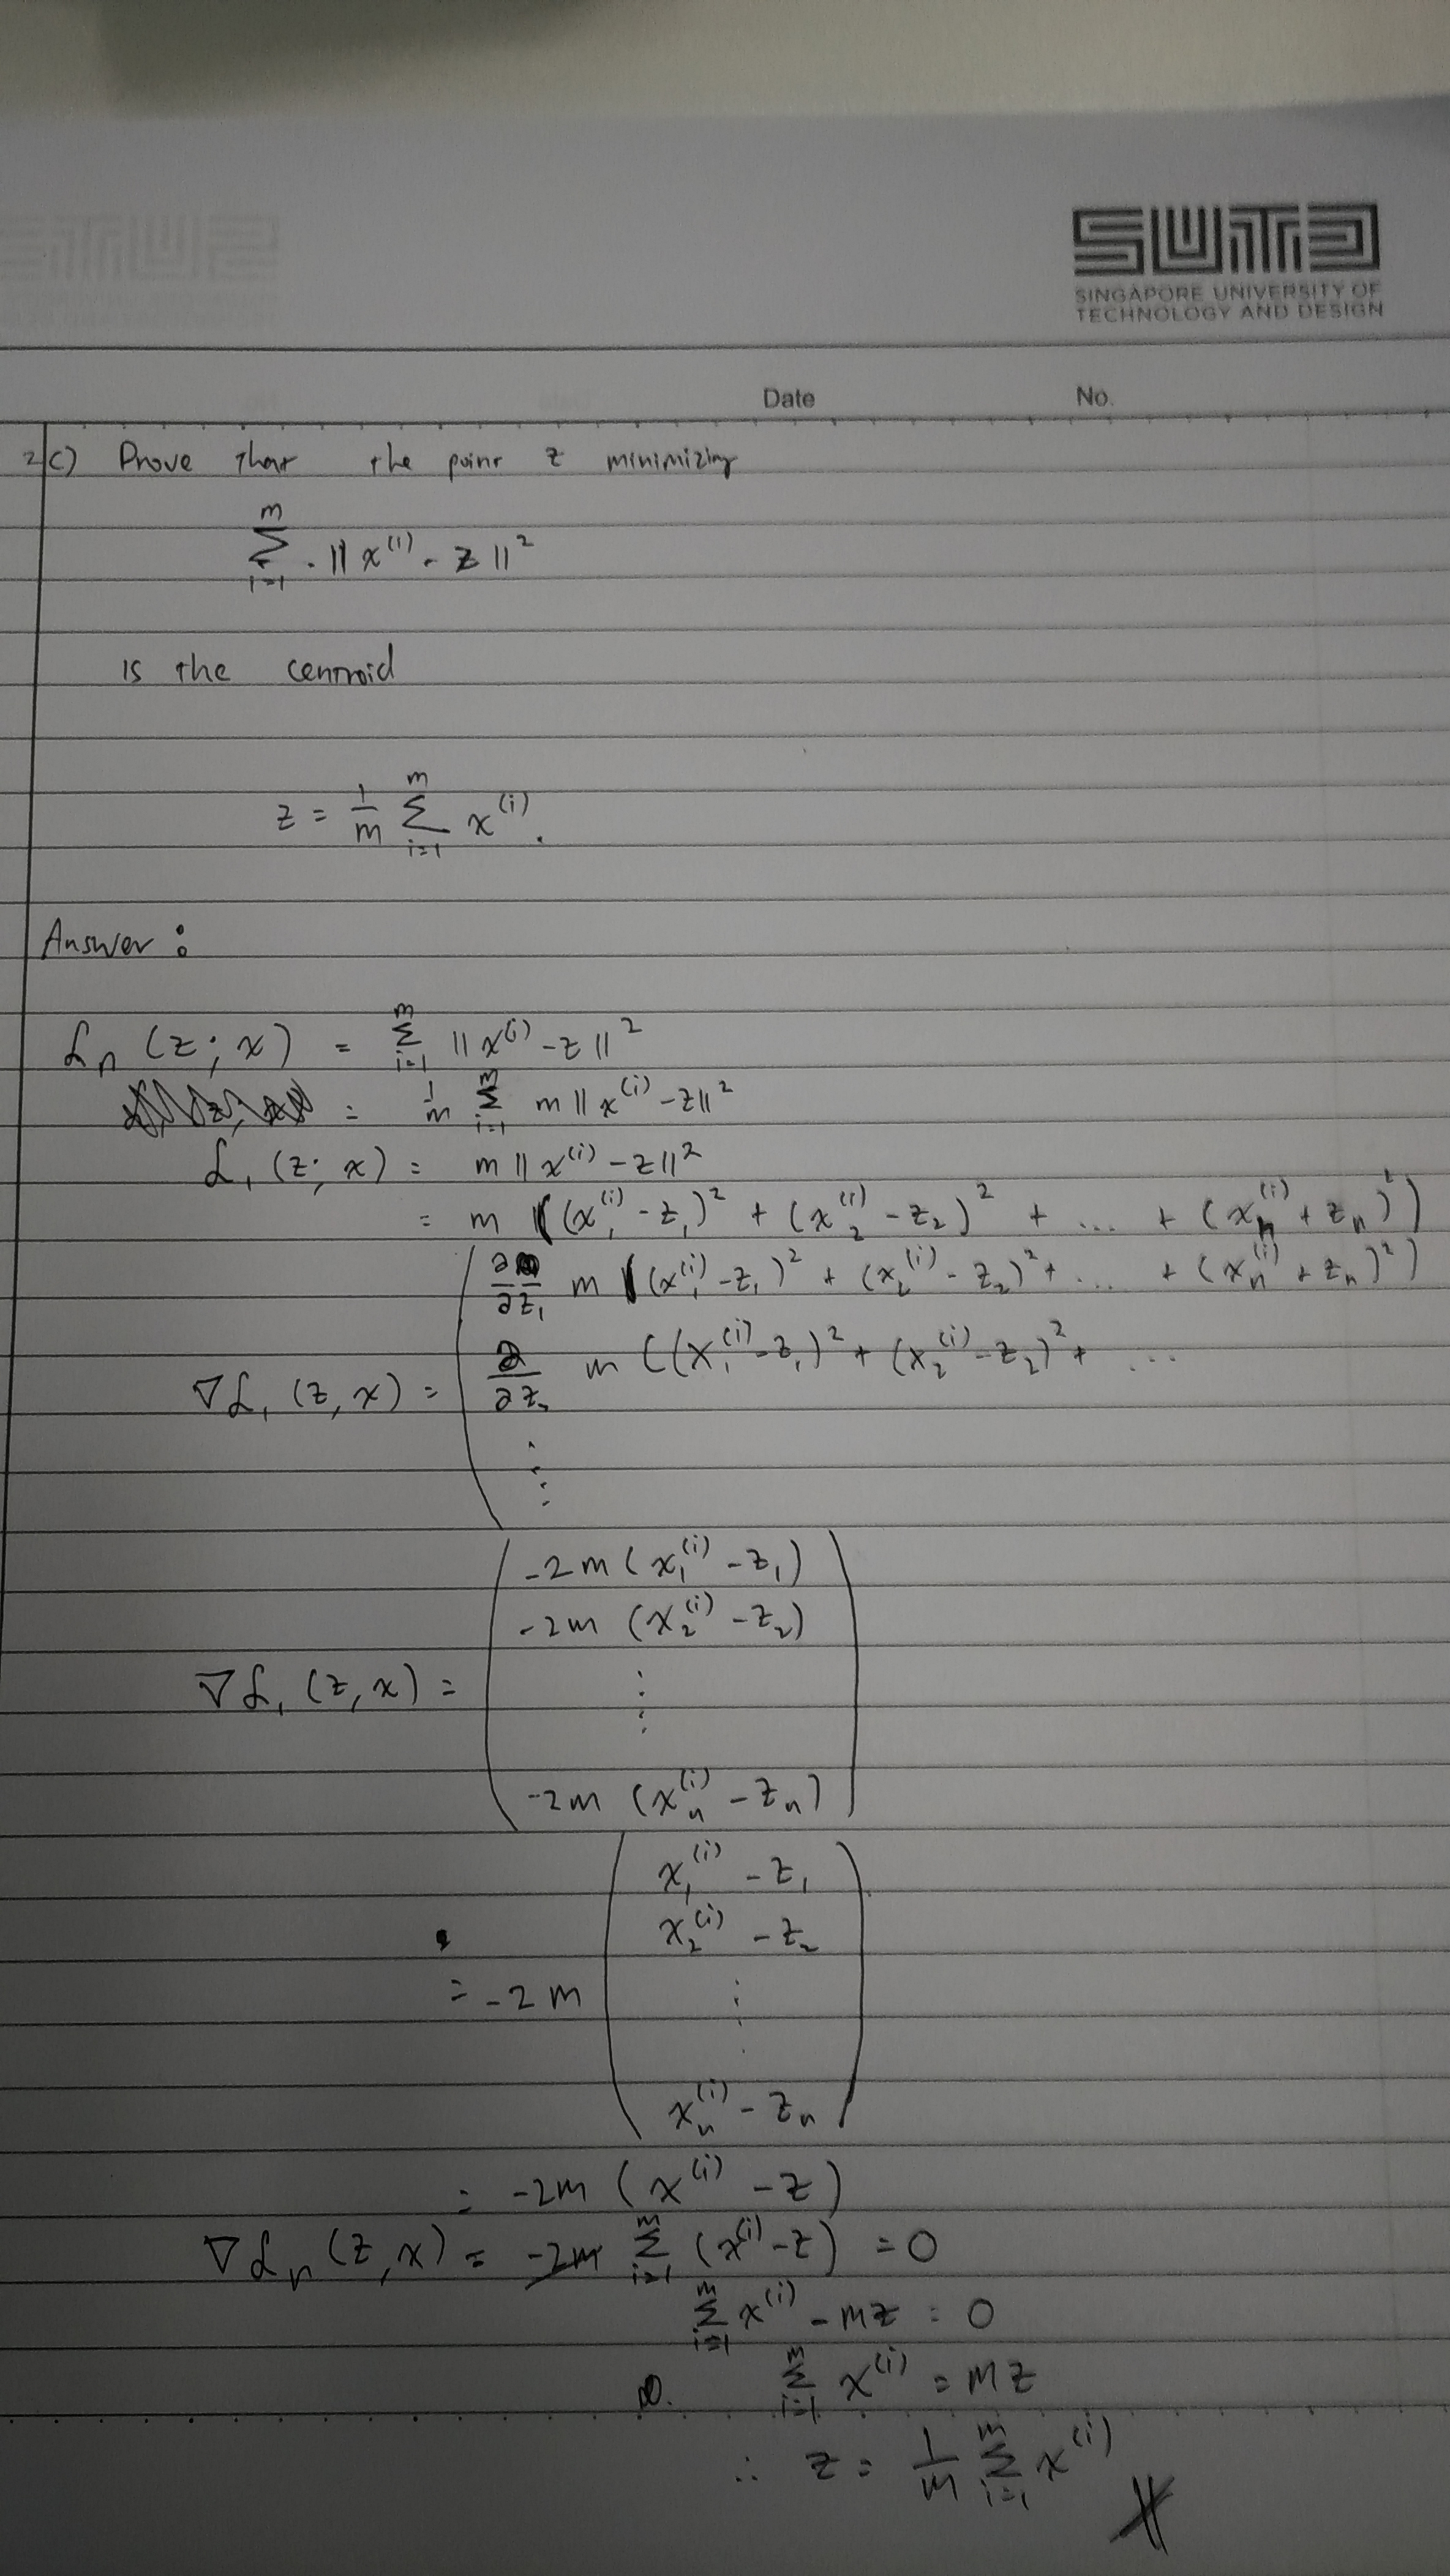 SUTD
SINGAPORE UNIVERSITY OF
TECHNOLOGY AND DESIGN
Date No.
2 c) Prove that the point z minimizing
∑_{i=1}^{m} . ‖ x^{(i)} - z ‖^2
is the centroid
z = 1/m ∑_{i=1}^{m} x^{(i)}.
Answer :
ℒ_n (z; x) = ∑_{i=1}^{m} ‖ x^{(i)} - z ‖^2
= 1/m ∑_{i=1}^{m} m ‖ x^{(i)} - z ‖^2
ℒ_1 (z; x) = m ‖ x^{(i)} - z ‖^2
= m ((x_1^{(i)} - z_1)^2 + (x_2^{(i)} - z_2)^2 + ... + (x_n^{(i)} + z_n)^2)
∂/∂z_1 m ((x_1^{(i)} - z_1)^2 + (x_2^{(i)} - z_2)^2 + ... + (x_n^{(i)} + z_n)^2)
∂/∂z_2 m ((x_1^{(i)} - z_1)^2 + (x_2^{(i)} - z_2)^2 + ...
∇ℒ_1 (z, x) = ( ⋮
-2m (x_1^{(i)} - z_1)
-2m (x_2^{(i)} - z_2)
∇ℒ_1 (z, x) = ( ⋮ )
-2m (x_n^{(i)} - z_n)
x_1^{(i)} - z_1
x_2^{(i)} - z_2
= -2m ( ⋮ )
x_n^{(i)} - z_n
= -2m (x^{(i)} - z)
∇ℒ_n (z, x) = -2m ∑_{i=1}^{m} (x^{(i)} - z) = 0
∑_{i=1}^{m} x^{(i)} - mz = 0
∑_{i=1}^{m} x^{(i)} = mz
∴ z = 1/m ∑_{i=1}^{m} x^{(i)}